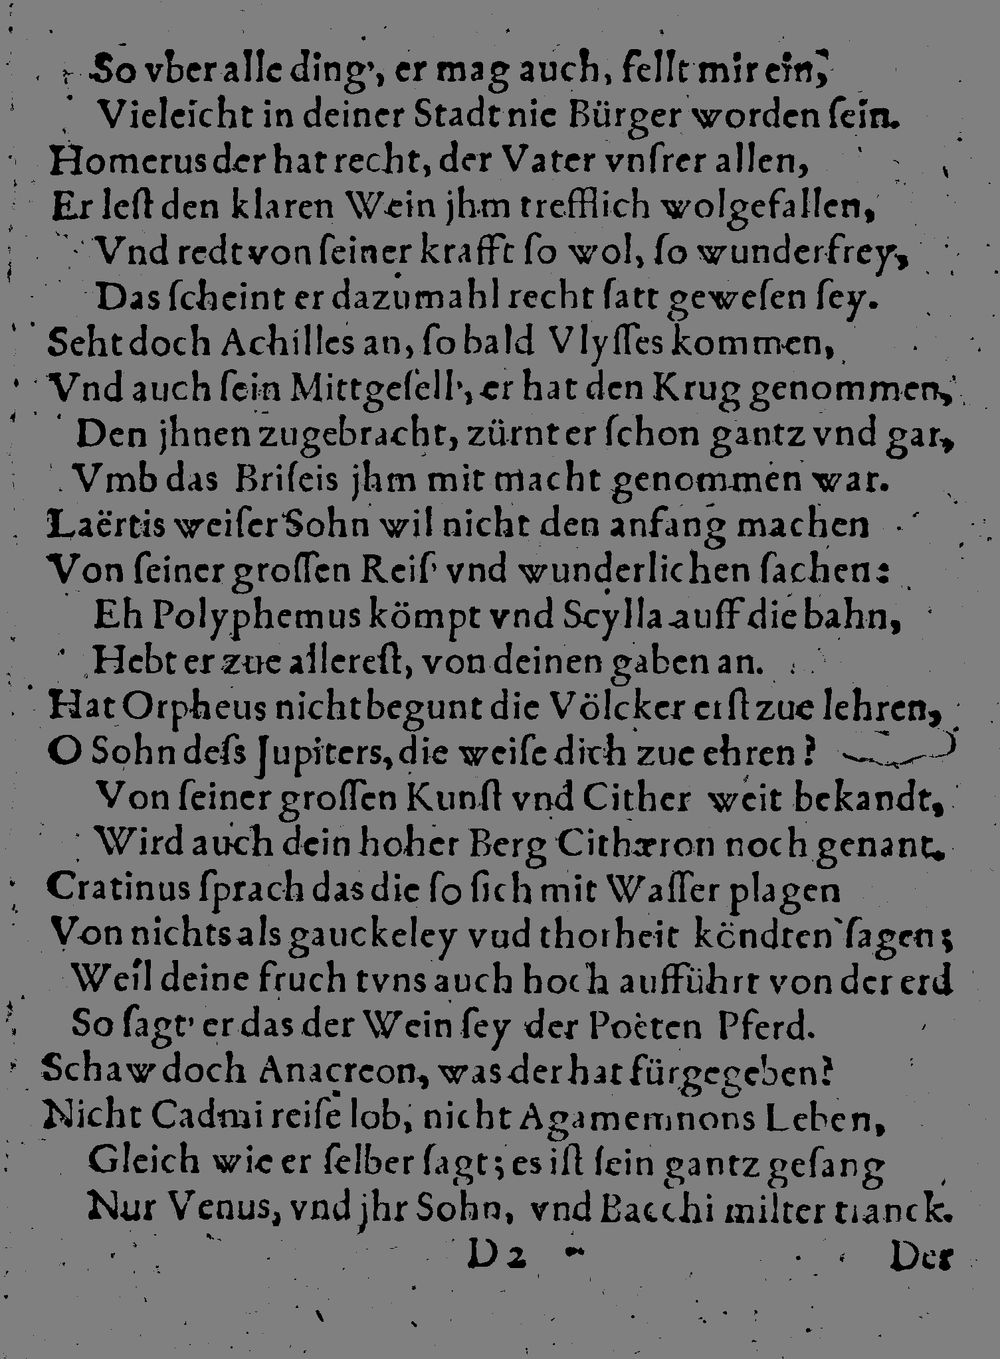 So vber alle ding', er mag auch, fellt mir ein,
Vieleicht in deiner Stadt nie Bürger worden ſein.
Homerus der hat recht, der Vater vnſrer allen,
Er leſt den klaren Wein jhm trefflich wolgefallen,
Vnd redt von ſeiner krafft ſo wol, ſo wunderfrey,
Das ſcheint er dazumahl recht ſatt geweſen ſey.
Seht doch Achilles an, ſo bald Vlyſſes kommen,
Vnd auch ſein Mittgeſell', er hat den Krug genommen,
Den jhnen zugebracht, zürnt er ſchon gantz vnd gar,
Vmb das Briſeis jhm mit macht genommen war.
Laërtis weiſer Sohn wil nicht den anfang machen
Von ſeiner groſſen Reiſ' vnd wunderlichen ſachen:
Eh Polyphemus kömpt vnd Scylla auff die bahn,
Hebt er zue allereſt, von deinen gaben an.
Hat Orpheus nicht begunt die Völcker erſt zue lehren,
O Sohn deſs Jupiters, die weiſe dich zue ehren?
Von ſeiner groſſen Kunſt vnd Cither weit bekandt,
Wird auch dein hoher Berg Cithæron noch genant.
Cratinus ſprach das die ſo ſich mit Waſſer plagen
Von nichts als gauckeley vud thorheit köndten ſagen;
Weil deine fruch tvns auch hoch aufführt von der erd
So ſagt' er das der Wein ſey der Poëten Pferd.
Schaw doch Anacreon, was der hat fürgegeben?
Nicht Cadmi reiſe lob, nicht Agamemnons Leben,
Gleich wie er ſelber ſagt; es iſt ſein gantz geſang
Nur Venus, vnd jhr Sohn, vnd Bacchi milter tranck.
D 2
Der